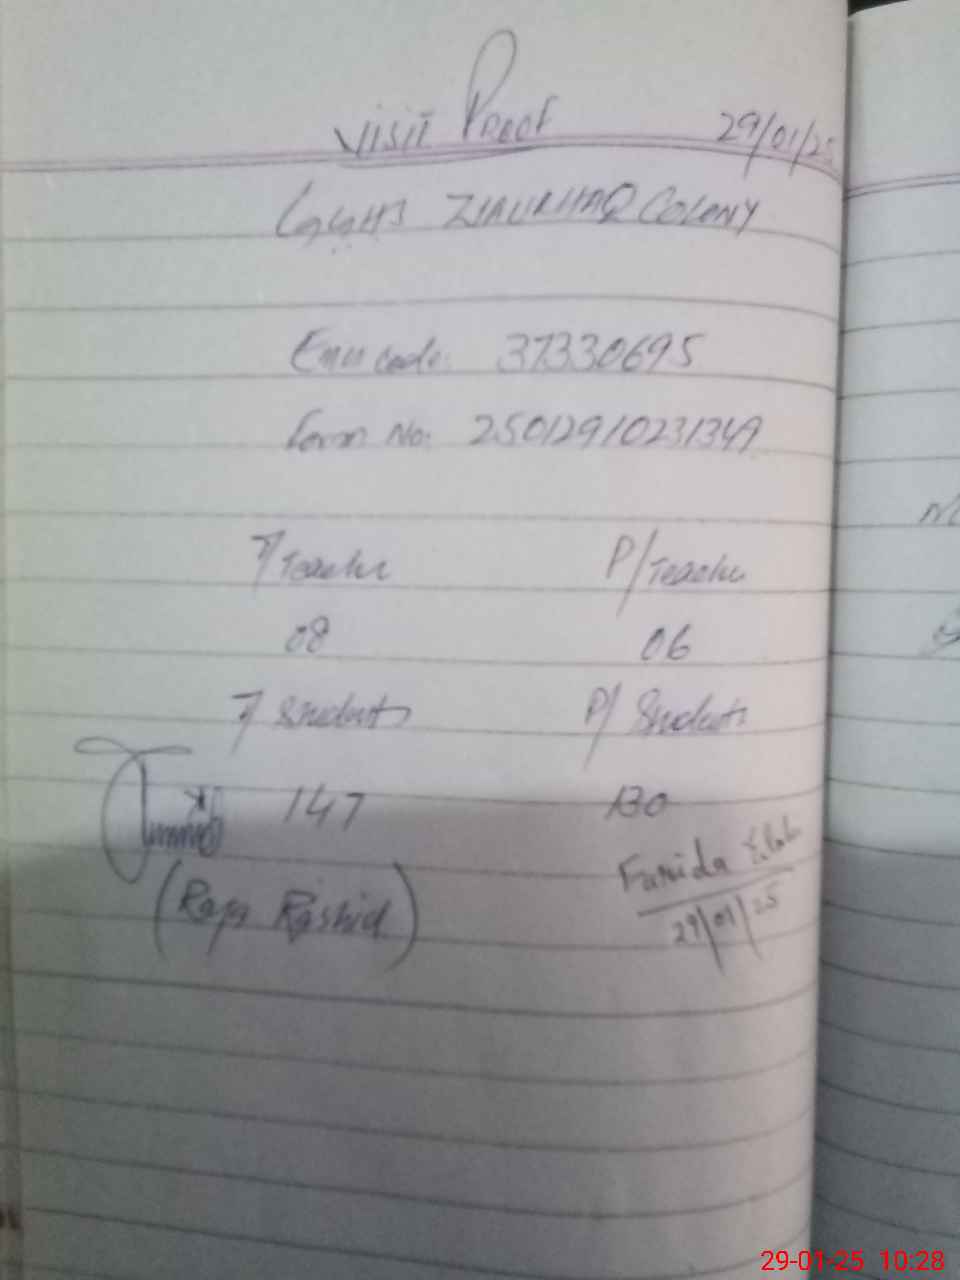 VISIT PROOF 29/01/25
GGHS ZIAURHAQ COLONY
Emis code: 37330695
Form No: 2501291023134A
T/Teacher P/Teacher
08 06
T/Students P/Students
147 130
(Raja Rashid)
Farida
29/01/25
29-01-25 10:28